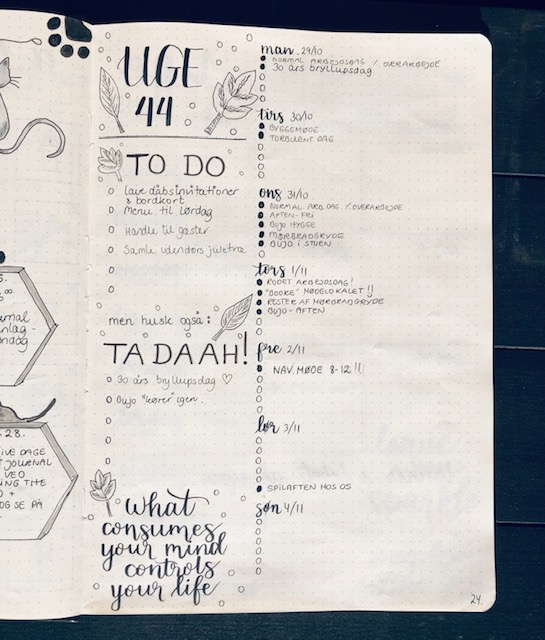 UGE
44
TO DO
Lave dåbsinvitationer
& bordkort
Menu til lørdag
Handle til gæster
Samle udendørs juletræ
men husk også:
TADAAH!
30 års bryllupsdag ♡
Bujo "kører" igen.
What
consumes
your mind
controls
your life
man. 29/10
NORMAL ARBEJDSDAG / OVERARBEJDE
30 års bryllupsdag
tirs 30/10
BYGGEMØDE
TURBULENT DAG
ons 31/10
NORMAL ARB.DAG. / OVERARBEJDE
AFTEN-FRI
BUJO HYGGE
MØRBRADGRYDE
BUJO I STUEN
tors 1/11
RODET ARBEJDSDAG!
MØDELOKALET !!
RESTER AF MØRBRADGRYDE
BUJO-AFTEN
fre 2/11
NAV. MØDE 8-12 !!
lør 3/11
SPILAFTEN HOS OS
søn 4/11
24.
28.
IVE DAGE
JOURNAL
VED
ING THE
OG SE PÅ